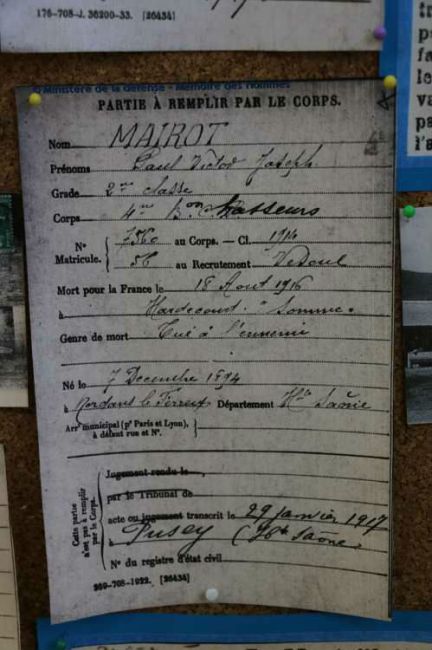 176-708-J. 36200-33. [26434]
© Ministère de la défense - Mémoire des hommes
PARTIE À REMPLIR PAR LE CORPS.
Nom MAIROT
Prénoms Paul Victor Joseph
Grade 2me classe
Corps 4me Bon Chasseurs
N° Matricule. { 7560 au Corps. — Cl. 1914
56 au Recrutement Vesoul
Mort pour la France le 18 Aout 1916
à Hardecourt "Somme"
Genre de mort Tué à l'ennemi
Né le 7 Decembre 1894
à le Département Hte Saône
Arrt municipal (pr Paris et Lyon), à défaut rue et N°.
Cette partie n'est pas à remplir par le Corps.
Jugement rendu le
par le Tribunal de
acte ou jugement transcrit le 29 janvier 1917
à Pusey (Hte Saône)
N° du registre d'état civil
269-708-1922. [26434]